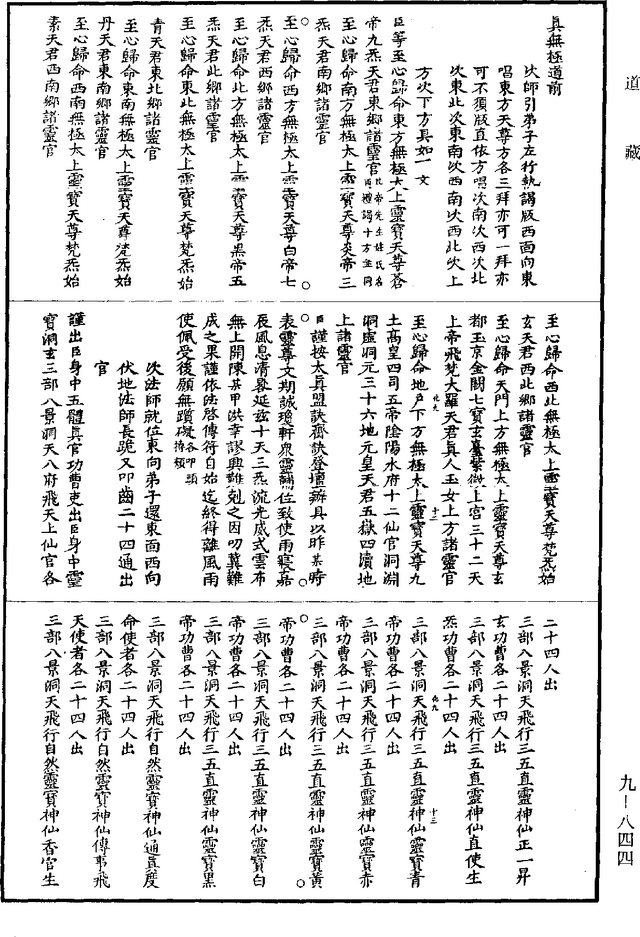 道藏
真無極道前
次師引弟子立行執謁版西面向東
唱東方天尊方各三拜亦可一拜亦
可不須版直依方唱次南次西次北
次東北次東南次西南次西北次上
方次下方具如一文
臣等至心歸命東方無極太上靈寶天尊蒼
帝九炁天君東鄉諸靈官
至心歸命南方無極太上靈寶天尊炎帝三
炁天君南鄉諸靈官
至心歸命西方無極太上靈寶天尊白帝七
炁天君西鄉諸靈官
至心歸命北方無極太上靈寶天尊黑帝五
炁天君北鄉諸靈官
至心歸命東北無極太上靈寶天尊梵炁始
青天君東北鄉諸靈官
至心歸命東南無極太上靈寶天尊梵炁始
丹天君東南鄉諸靈官
至心歸命西南無極太上靈寶天尊梵炁始
素天君西南鄉諸靈官
至心歸命西北無極太上靈寶天尊梵炁始
玄天君西北鄉諸靈官
至心歸命天門上方無極太上靈寶天尊玄
都玉京金闕七寶玄臺紫微上宮三十二天
上帝飛梵大羅天君真人玉女上方諸靈官
至心歸命地戶下方無極太上靈寶天尊九
土高皇四司五帝陰陽水府十二仙官洞淵
洞虛洞元三十六地元皇天君五嶽四瀆地
上諸靈官
臣謹按太真盟訣齋訣登壇辦具以昨某時
表靈尊文期誠瓊軒衆靈翤位致使雨寢嘉
辰風息清晷延茲十天三炁流光感式雲布
無上開陳某甲洪幸謬與難剋之因叨冀難
成之果謹依法啓傳符自始迄終得離風雨
使佩受後願無躓礙各叩頭搏頰
次法師就位東向弟子還東面西向
伏地法師長跪又叩齒二十四通出
官
謹出臣身中五體真官功曹吏出臣身中靈
寶洞玄三部八景洞天八府飛天上仙官各
二十四人出
三部八景洞天飛行三五直靈神仙正一昇
玄功曹各二十四人出
三部八景洞天飛行三五直靈神仙直使生
炁功曹各二十四人出
三部八景洞天飛行三五直靈神仙靈寶青
帝功曹各二十四人出
三部八景洞天飛行三五直靈神仙靈寶赤
帝功曹各二十四人出
三部八景洞天飛行三五直靈神仙靈寶黃
帝功曹各二十四人出
三部八景洞天飛行三五直靈神仙靈寶白
帝功曹各二十四人出
三部八景洞天飛行三五直靈神仙靈寶黑
帝功曹各二十四人出
三部八景洞天飛行自然靈寶神仙通真度
命使者各二十四人出
三部八景洞天飛行自然靈寶神仙傳事飛
天使者各二十四人出
三部八景洞天飛行自然靈寶神仙香官生
九－八四四